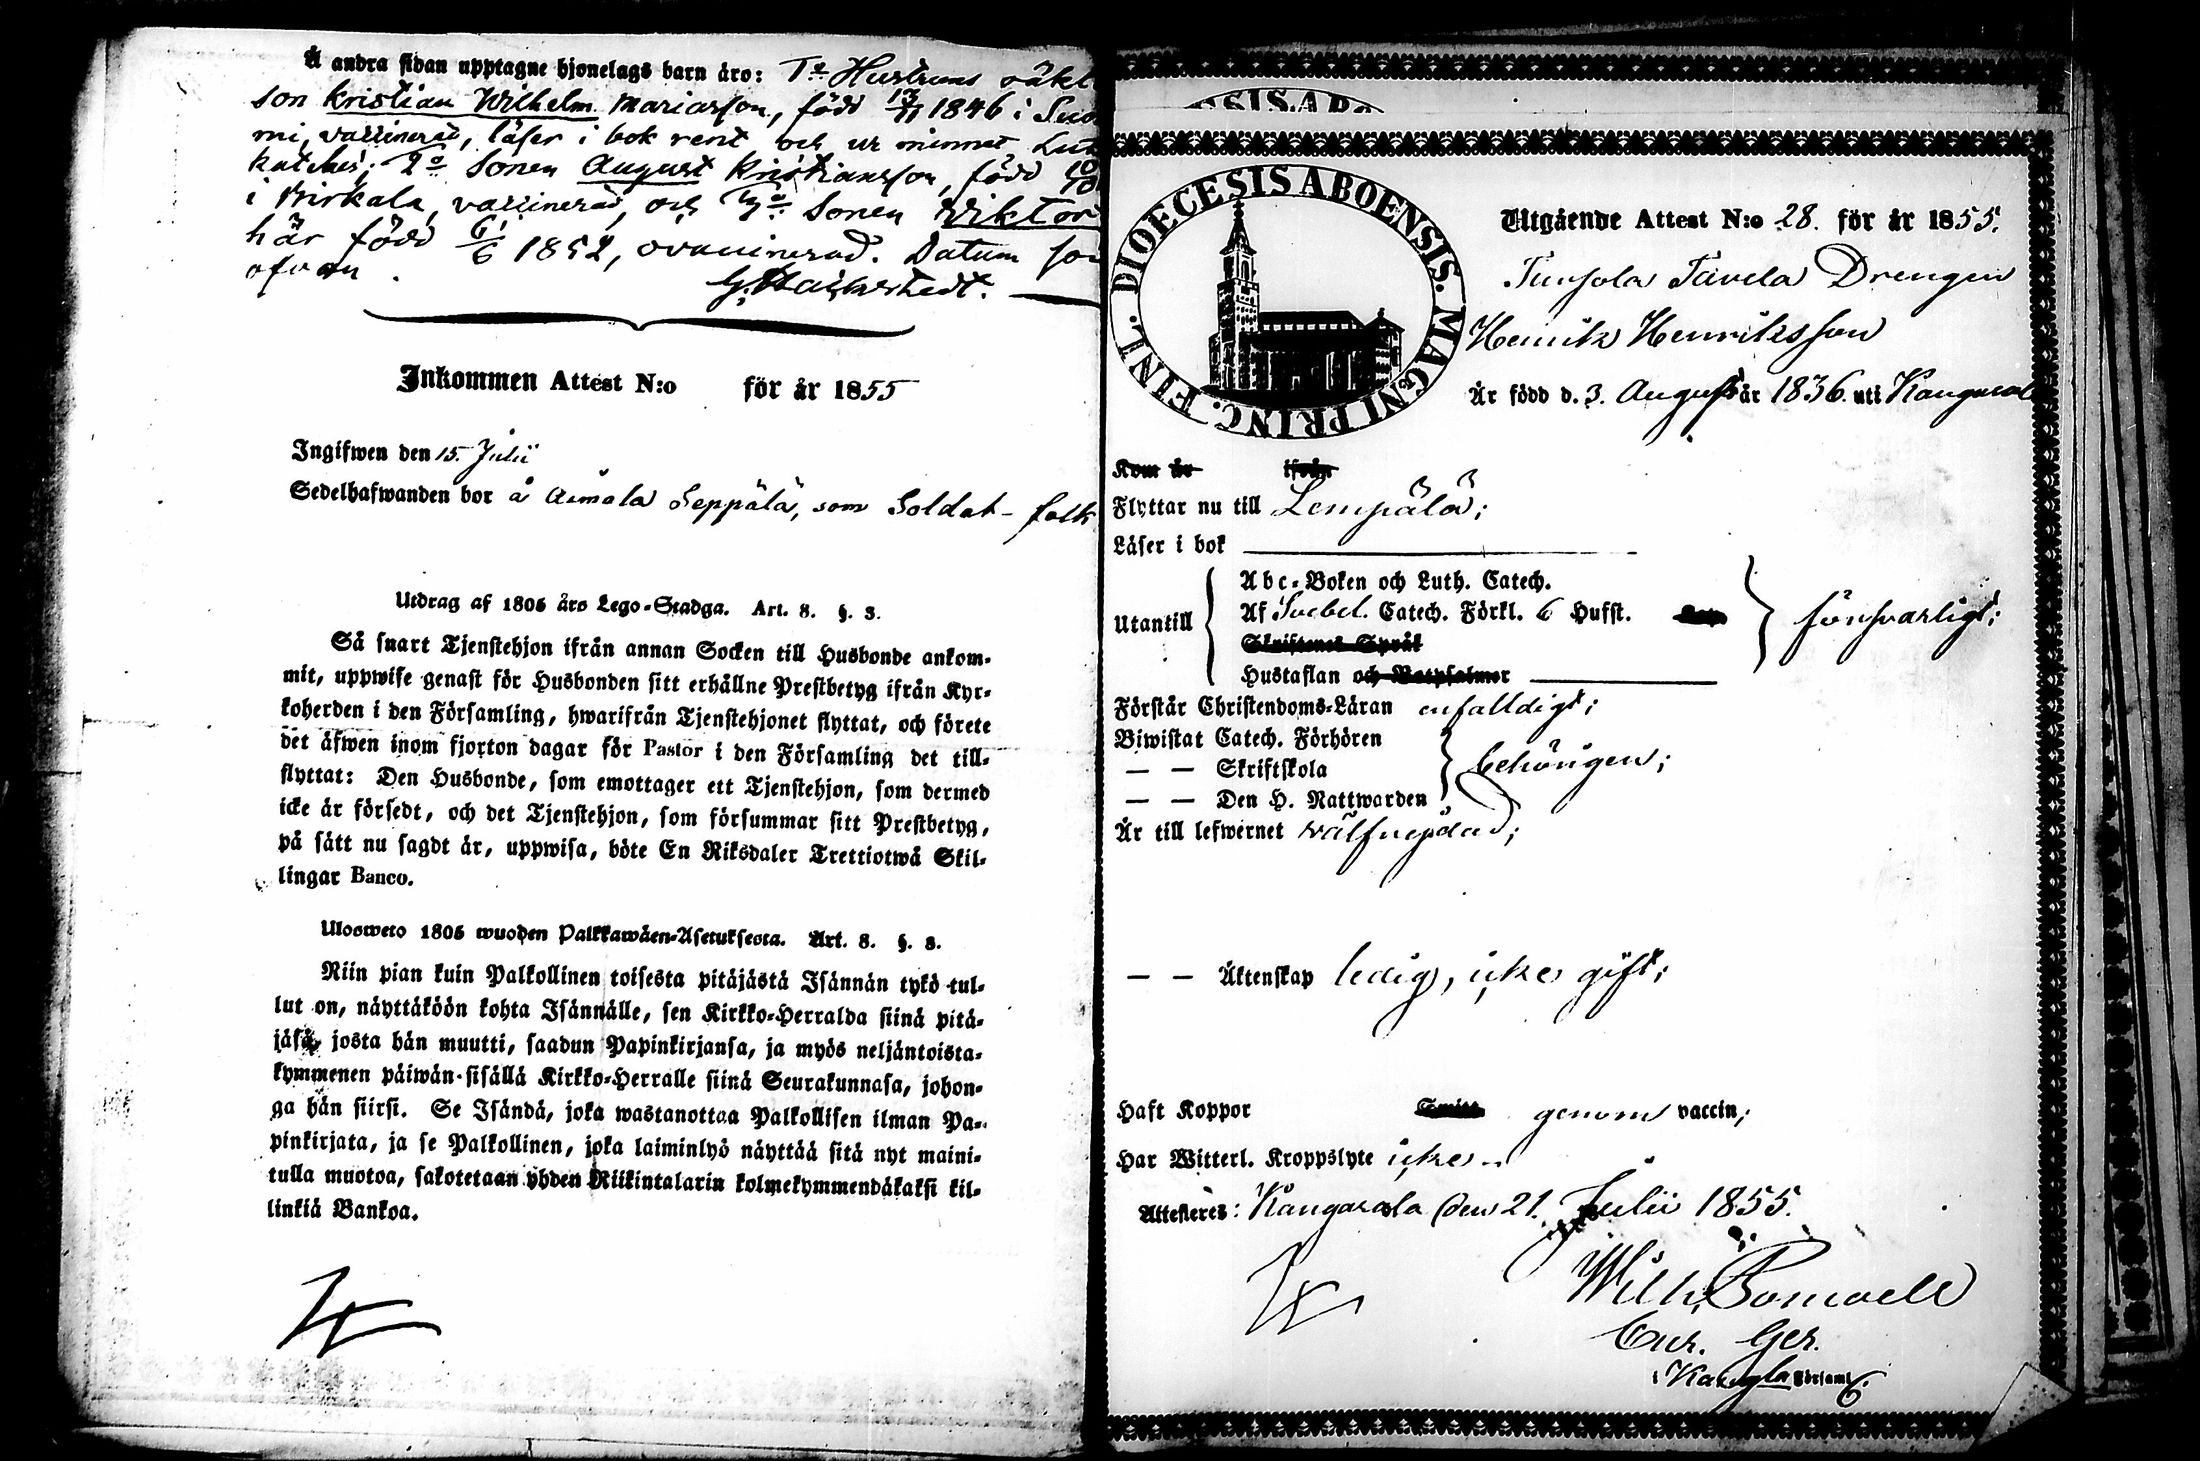 Å andra sidan upptagne hjonelags barn äro: 1:o Hustruns oäkt
son Kristian Wilhelm Mariasson, född 1846 i
mi, vaccinerad, läser i bok rent och ur minnet Lut
katches; 2:o Sonen August Kristiansson, född
i Birkala, vaccinerad, och 3:o Sonen Wiktor
här född 1852, ovaccinerad. Datum som
ofvan.
Inkommen Attest N:o för år 1855
Ingifwen den 15. Julii
Sedelhafwanden bor å Aimala Seppälä, som Soldat-folk
Utdrag af 1805 års Lego-Stadga. Art. 8. §. 3.
Så snart Tjenstehjon ifrån annan Socken till Husbonde ankom-
mit, uppwise genast för Husbonden sitt erhållne Prestbetyg ifrån Kyr-
koherden i den Församling, hwarifrån Tjenstehjonet flyttat, och förete
det äfwen inom fjorton dagar för Pastor i den Församling det till-
flyttat: Den Husbonde, som emottager ett Tjenstehjon, som dermed
icke är försedt, och det Tjenstehjon, som försummar sitt Prestbetyg,
på sätt nu sagdt är, uppwisa, böte En Riksdaler Trettiotwå Skil-
lingar Banco.
Ulosweto 1805 wuoden Palkkawäen-Asetuksesta. Art. 8. §. 3.
Niin pian kuin Palkollinen toisesta pitäjästä Isännän tykö tul-
lut on, näyttäköön kohta Isännälle, sen Kirkko-Herralda siinä pitä-
jäsä, josta hän muutti, saadun Papinkirjansa, ja myös neljäntoista-
kymmenen päiwän sisällä Kirkko-Herralle siinä Seurakunnasa, johon-
ga hän siirsi. Se Isändä, joka wastanottaa Palkollisen ilman Pa-
pinkirjata, ja se Palkollinen, joka laiminlyö näyttää sitä nyt maini-
tulla muotoa, sakotetaan yhden Riikintalarin kolmekymmendäkaksi kil-
linkiä Bankoa.
DIOECESIS ABOENSIS. MAGNI PRINC. FINL.
Utgående Attest N:o 28. för år 1855.
Drengen
Henrik Henriksson
Är född d. 3. August år 1836. uti Kangasala
Kom år ifrån
Flyttar nu till Lempälä;
Läser i bok
Utantill
Abc-Boken och Luth. Catech.
Af Svebel. Catech. Förkl. 6 Hufst.
Skriftenes Språk
Hustaflan och Botpsalmer
försvarligt;
Förstår Christendoms-Läran enfalldigt;
Biwistat Catech. Förhören
— — Skriftskola
— — Den H. Nattwarden
behörigen;
Är till lefwernet välfrejdad;
— — Äktenskap ledig, icke gift;
Haft Koppor Smitt genom vaccin;
Har Witterl. Kroppslyte icke.
Attesteres: Kangasala den 21. Julii 1855.
i Kangla Församl.